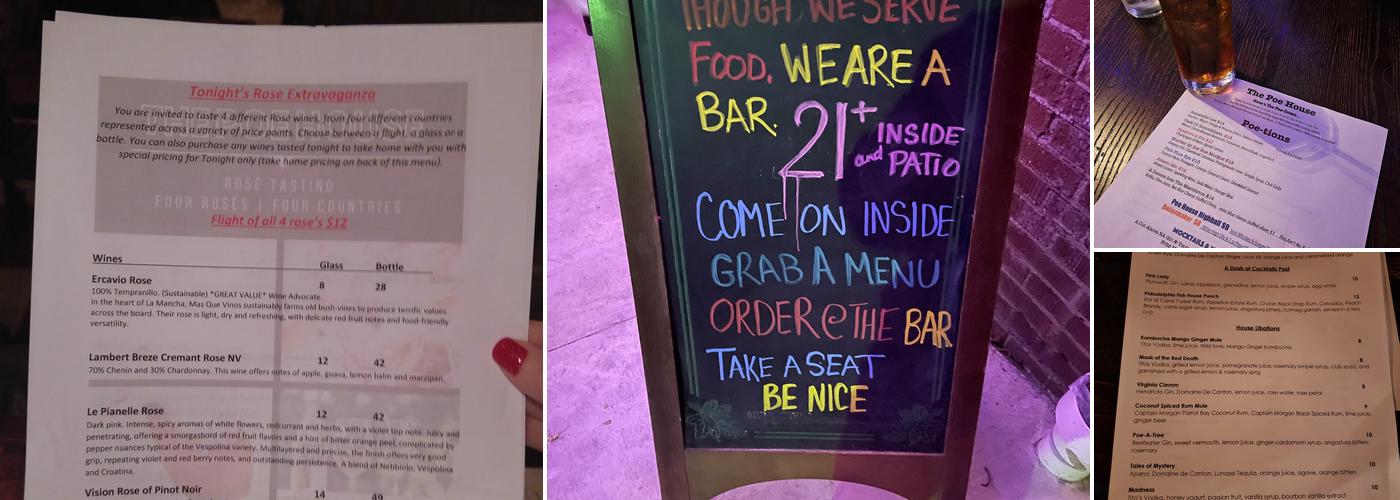 Tonight's Rose Extravaganza
You are invited to taste 4 different Rosé wines, from four different countries
represented across a variety of price points. Choose between a flight, a glass or a
bottle. You can also purchase any wines tasted tonight to take home with you with
special pricing for Tonight only (take home pricing on back of this menu).
ROSÉ TASTING
FOUR ROSÉS | FOUR COUNTRIES
Flight of all 4 rose's $12
Wines Glass Bottle
Ercavio Rose 8 28
100% Tempranillo. (Sustainable) *GREAT VALUE* Wine Advocate.
In the heart of La Mancha, Mas Que Vinos sustainably farms old bush-vines to produce terrific values
across the board. Their rose is light, dry and refreshing, with delicate red fruit notes and food-friendly
versatility.
Lambert Breze Cremant Rose NV 12 42
70% Chenin and 30% Chardonnay. This wine offers notes of apple, guava, lemon balm and marzipan.
Le Pianelle Rose 12 42
Dark pink. Intense, spicy aromas of white flowers, redcurrant and herbs, with a violet top note. Juicy and
penetrating, offering a smorgasbord of red fruit flavors and a hint of bitter orange peel, complicated by
pepper nuances typical of the Vespolina variety. Multilayered and precise, the finish offers very good
grip, repeating violet and red berry notes, and outstanding persistence. A blend of Nebbiolo, Vespolina
and Croatina.
Vision Rose of Pinot Noir 14 49
THOUGH WE SERVE
FOOD. WE ARE A
BAR. 21+ INSIDE
and PATIO
COME ON INSIDE
GRAB A MENU
ORDER @ THE BAR
TAKE A SEAT
BE NICE
The Poe House
Here's the Poe-Down...
Poe-tions
Annabelle Lee $14
Poe House Highball $9
Boilermaker $8
MOCKTAILS &
A Dash of Cocktails Past
Pink Lady 10
Plymouth Gin, Lairds Applejack, grenadine, lemon juice, simple syrup, egg white
Philadelphia Fish House Punch 12
Flor di Cana 7-year Rum, Appleton Estate Rum, Cruzan Black Strap Rum, Calvados, Peach
Brandy, cane sugar syrup, lemon juice, angostura bitters, nutmeg garnish, served in a tea
cup
House Libations
Kombucha Mango Ginger Mule 8
Titos Vodka, lime juice, Wild Tonic Mango Ginger Kombucha
Mask of the Red Death 8
Titos Vodka, grilled lemon juice, pomegranate juice, rosemary simple syrup, club soda, and
garnished with a grilled lemon & rosemary sprig
Virginia Clemm 8
Hendricks Gin, Domaine De Canton, lemon juice, rose water, rose petal
Coconut Spiced Rum Mule 9
Captain Morgan Parrot Bay Coconut Rum, Captain Morgan Black Spiced Rum, lime juice,
ginger beer
Poe-A-Tree 10
Beefeater Gin, sweet vermouth, lemon juice, ginger-cardamom syrup, angostura bitters,
rosemary
Tales of Mystery 10
Aperol, Domaine de Canton, Lunazel Tequila, orange juice, agave, orange bitters
Madness 10
Stoli Vodka, honey yogurt, passion fruit, vanilla syrup, bourbon vanilla extract